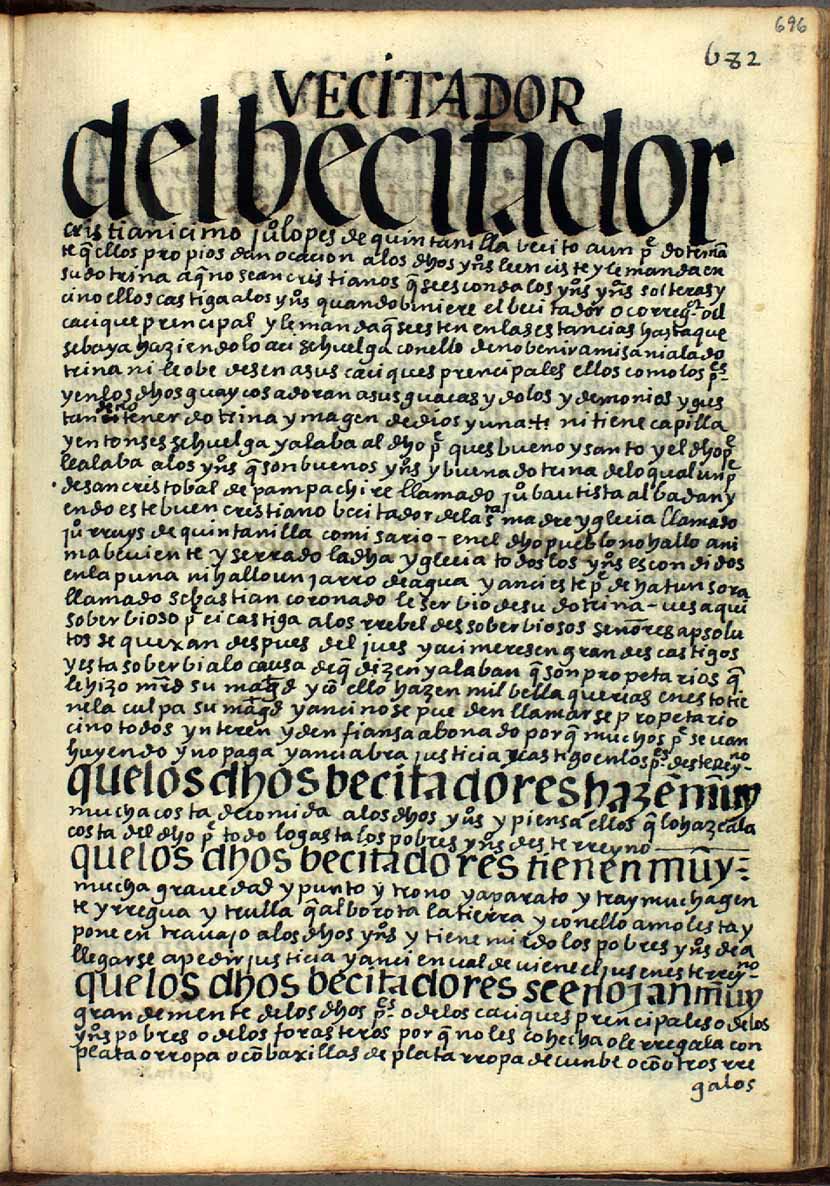 696
682
VECITADOR
del becitador
cristianicimo juo lopes de quintanilla becito a un pe dotrina
te q̃ ellos propios dan ocacion a los dhos ynos le enciste y le manda en
su dotrina a q̃ no sean cristianos q̃ se esconda los yños yñs solteras y
cino ellos castiga a los yños quando biniere el becitador o corregor o el
cacique prencipal y le manda q̃ se esten en las estancias hasta que
se baya haziendolo aci se huelga con ello de no benir a misa ni a la do
trina ni le obedesen a sus caciques prencipales ellos como los pes
y en los dhos guaycos adoran a sus guacas ydolos y demonios y gus
tan de no tener dotrina ymagen de dios y una ni tiene capilla
y entonses se huelga y alaba al dho pe ques bueno y santo y el dho pe
le alaba a los yños q̃ son buenos yños y buena dotrina de lo qual un pe
de san cristobal de pampachire llamado juo bautista albadan y
endo este buen cristiano becitador de la sta madre yglecia llamado
juo rruys de quintanilla comisario - en el dho pueblo no hallo ani
ma beviente y serrado la dha yglecia todos los yños escondidos
en la puna ni hallo un jarro de agua y anci este pe de hatun sora
llamado sebastian coronado le serbio de su dotrina - ves aqui
soberbioso pe ci castiga a los rrebeldes soberbiosos señores apsolu
tos se quexan despues del jues y aci meresen grandes castigos
y esta soberbia lo causa de q̃ dizen y alaban q̃ son propetarios q̃
le hizo mrd su magd y cō ello hazen mil bellaquerias en esto tie
ne la culpa su magd y anci no se pueden llamarse propetario
cino todos ynteren y den fiansa abonado por q̃ muchos pe se van
huyendo y no paga y anci abra justicia y castigo en los pes deste rreyno-
que los dhos becitadores hazen muy
mucha costa de comida a los dhos yños y piensa ellos q̃ lo haze a la
costa del dho pe todo lo gasta los pobres yños deste rreyno
que los dhos becitadores tienen muy-
mucha gravedad y punto y trono y aparato y tray mucha gen
te y rregua y trulla q̃ alborota la tierra y con ello amolesta y
pone en travajo a los dhos yños y tiene miedo los pobres yños de a
llegarse a pedir justicia y anci en val de viene el jues en este rreyno-
que los dhos becitadores se enojan muy
grandemente de los dhos pes o de los caciques prencipales o de los
yños pobres o de los forasteros por q̃ no les cohecha o le rregala con
plata o rropa o cō baxillas de plata rropa de cunbe o cō otros rre
galos